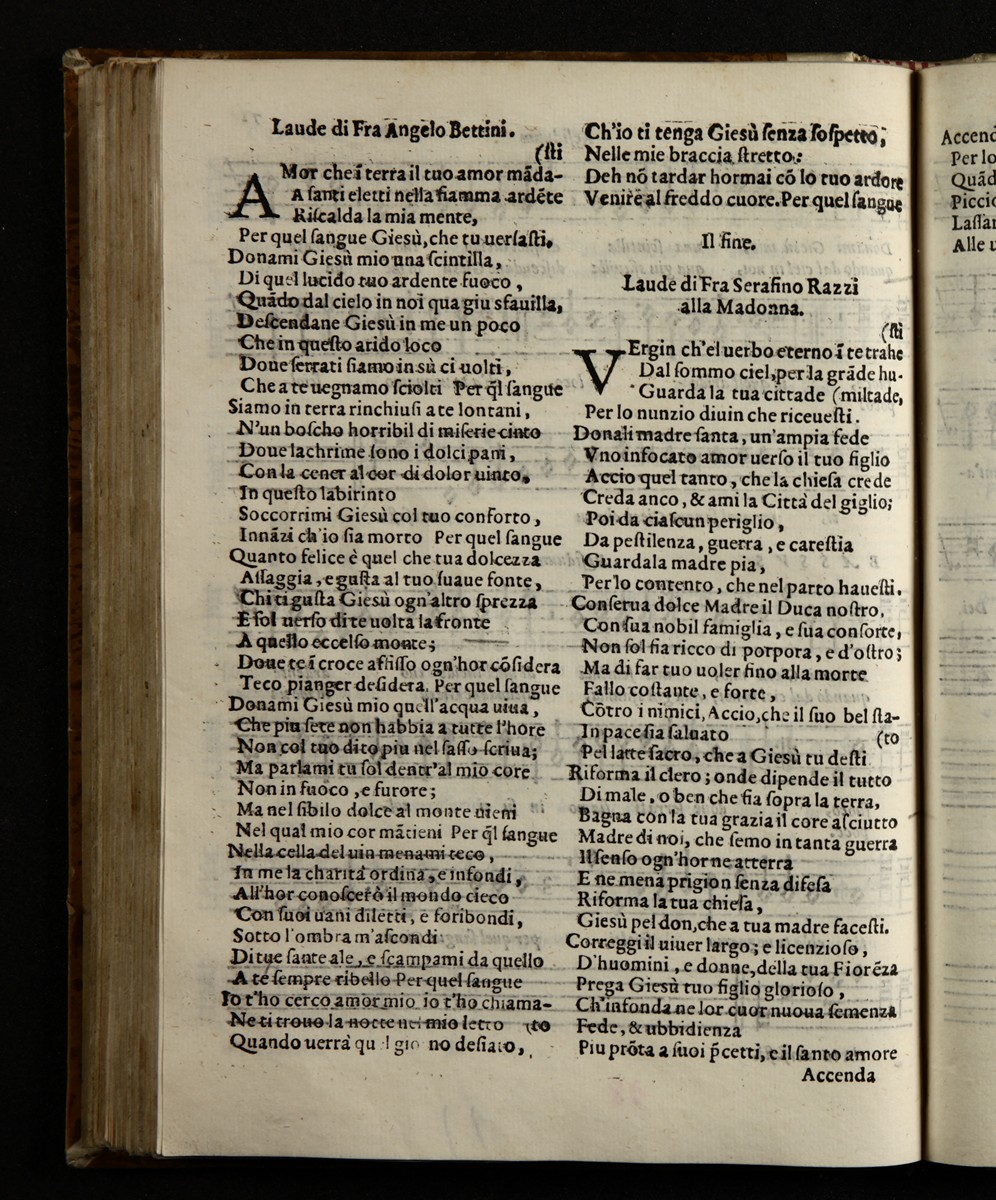 Laude di Fra Angelo Bettini.
(ſti
AMor che ĩ terra il tuo amor mãda-
A ſanti eletti nella fiamma ardẽte
Riſcalda la mia mente,
Per quel ſangue Giesù, che tu uerſaſti.
Donami Giesù mio una ſcintilla,
Di quel lucido tuo ardente fuoco,
Quãdo dal cielo in noi qua giu sfauilla,
Deſcendane Giesù in me un poco
Che in queſto arido loco
Doue ſerrati ſiamo in sù ci uolti,
Che a te uegnamo ſciolti Per q̃l ſangue
Siamo in terra rinchiuſi a te lontani,
N'un boſcho horribil di miſerie cinto
Doue lachrime ſono i dolci pani,
Con la cener al cor di dolor uinto.
In queſto labirinto
Soccorrimi Giesù col tuo conforto,
Innãzi ch'io ſia morto Per quel ſangue
Quanto felice è quel che tua dolcezza
Aſſaggia, e guſta al tuo ſuaue fonte,
Chi ti guſta Giesù ogn'altro ſprezza
E ſol uerſo di te uolta la fronte
A quello eccelſo monte;
Doue te ĩ croce affiſſo ogn'hor cõſidera
Teco pianger deſidera. Per quel ſangue
Donami Giesù mio quell'acqua uiua,
Che piu ſete non habbia a tutte l'hore
Non col tuo dito piu nel ſaſſo ſcriua;
Ma parlami tu ſol dentr'al mio core
Non in fuoco, e furore;
Ma nel ſibilo dolce al monte uieni
Nel qual mio cor mãtieni Per q̃l ſangue
Nella cella del uin menami teco,
In me la charità ordina, e infondi,
All'hor conoſcerò il mondo cieco
Con ſuoi uani diletti, e foribondi,
Sotto l'ombra m'aſcondi
Di tue ſante ale, e ſcampami da quello
A te ſempre ribello Per quel ſangue
Io t'ho cerco amor mio io t'ho chiama-
Ne ti trouo la notte nel mio letto (to
Quando uerrà qu l gio no deſiato,
Ch'io ti tenga Giesù ſenza ſoſpetto,
Nelle mie braccia ſtretto:
Deh nõ tardar hormai cõ lo tuo ardore
Venire al freddo cuore. Per quel ſangue
Il fine.
Laude di Fra Serafino Razzi
alla Madonna.
(ſti
VErgin ch'el uerbo eterno ĩ te trahe
Dal ſommo ciel, per la grãde hu-
Guarda la tua cittade (miltade,
Per lo nunzio diuin che riceueſti.
Donali madre ſanta, un'ampia fede
Vno infocato amor uerſo il tuo figlio
Accio quel tanto, che la chieſa crede
Creda anco, & ami la Città del giglio;
Poi da ciaſcun periglio,
Da peſtilenza, guerra, e careſtia
Guardala madre pia,
Per lo contento, che nel parto haueſti.
Conſerua dolce Madre il Duca noſtro,
Con ſua nobil famiglia, e ſua conſorte,
Non ſol ſia ricco di porpora, e d'oſtro;
Ma di far tuo uoler fino alla morte
Fallo coſtante, e forte,
Cõtro i nimici, Accio, che il ſuo bel ſta-
In pace ſia ſaluato (to
Pel latte ſacro, che a Giesù tu deſti
Riforma il clero; onde dipende il tutto
Di male, o ben che ſia ſopra la terra,
Bagna con la tua grazia il core aſciutto
Madre di noi, che ſemo in tanta guerra
Il ſenſo ogn'hor ne atterra
E ne mena prigion ſenza difeſa
Riforma la tua chieſa,
Giesù pel don, che a tua madre faceſti.
Correggi il uiuer largo; e licenzioſo,
D'huomini, e donne, della tua Fiorẽza
Prega Giesù tuo figlio glorioſo,
Ch'infonda ne lor cuor nuoua ſemenza
Fede, & ubbidienza
Piu prõta a ſuoi p̃cetti, e il ſanto amore
Accenda
Accend
Per lo
Quãd
Piccio
Laſſar
Alle